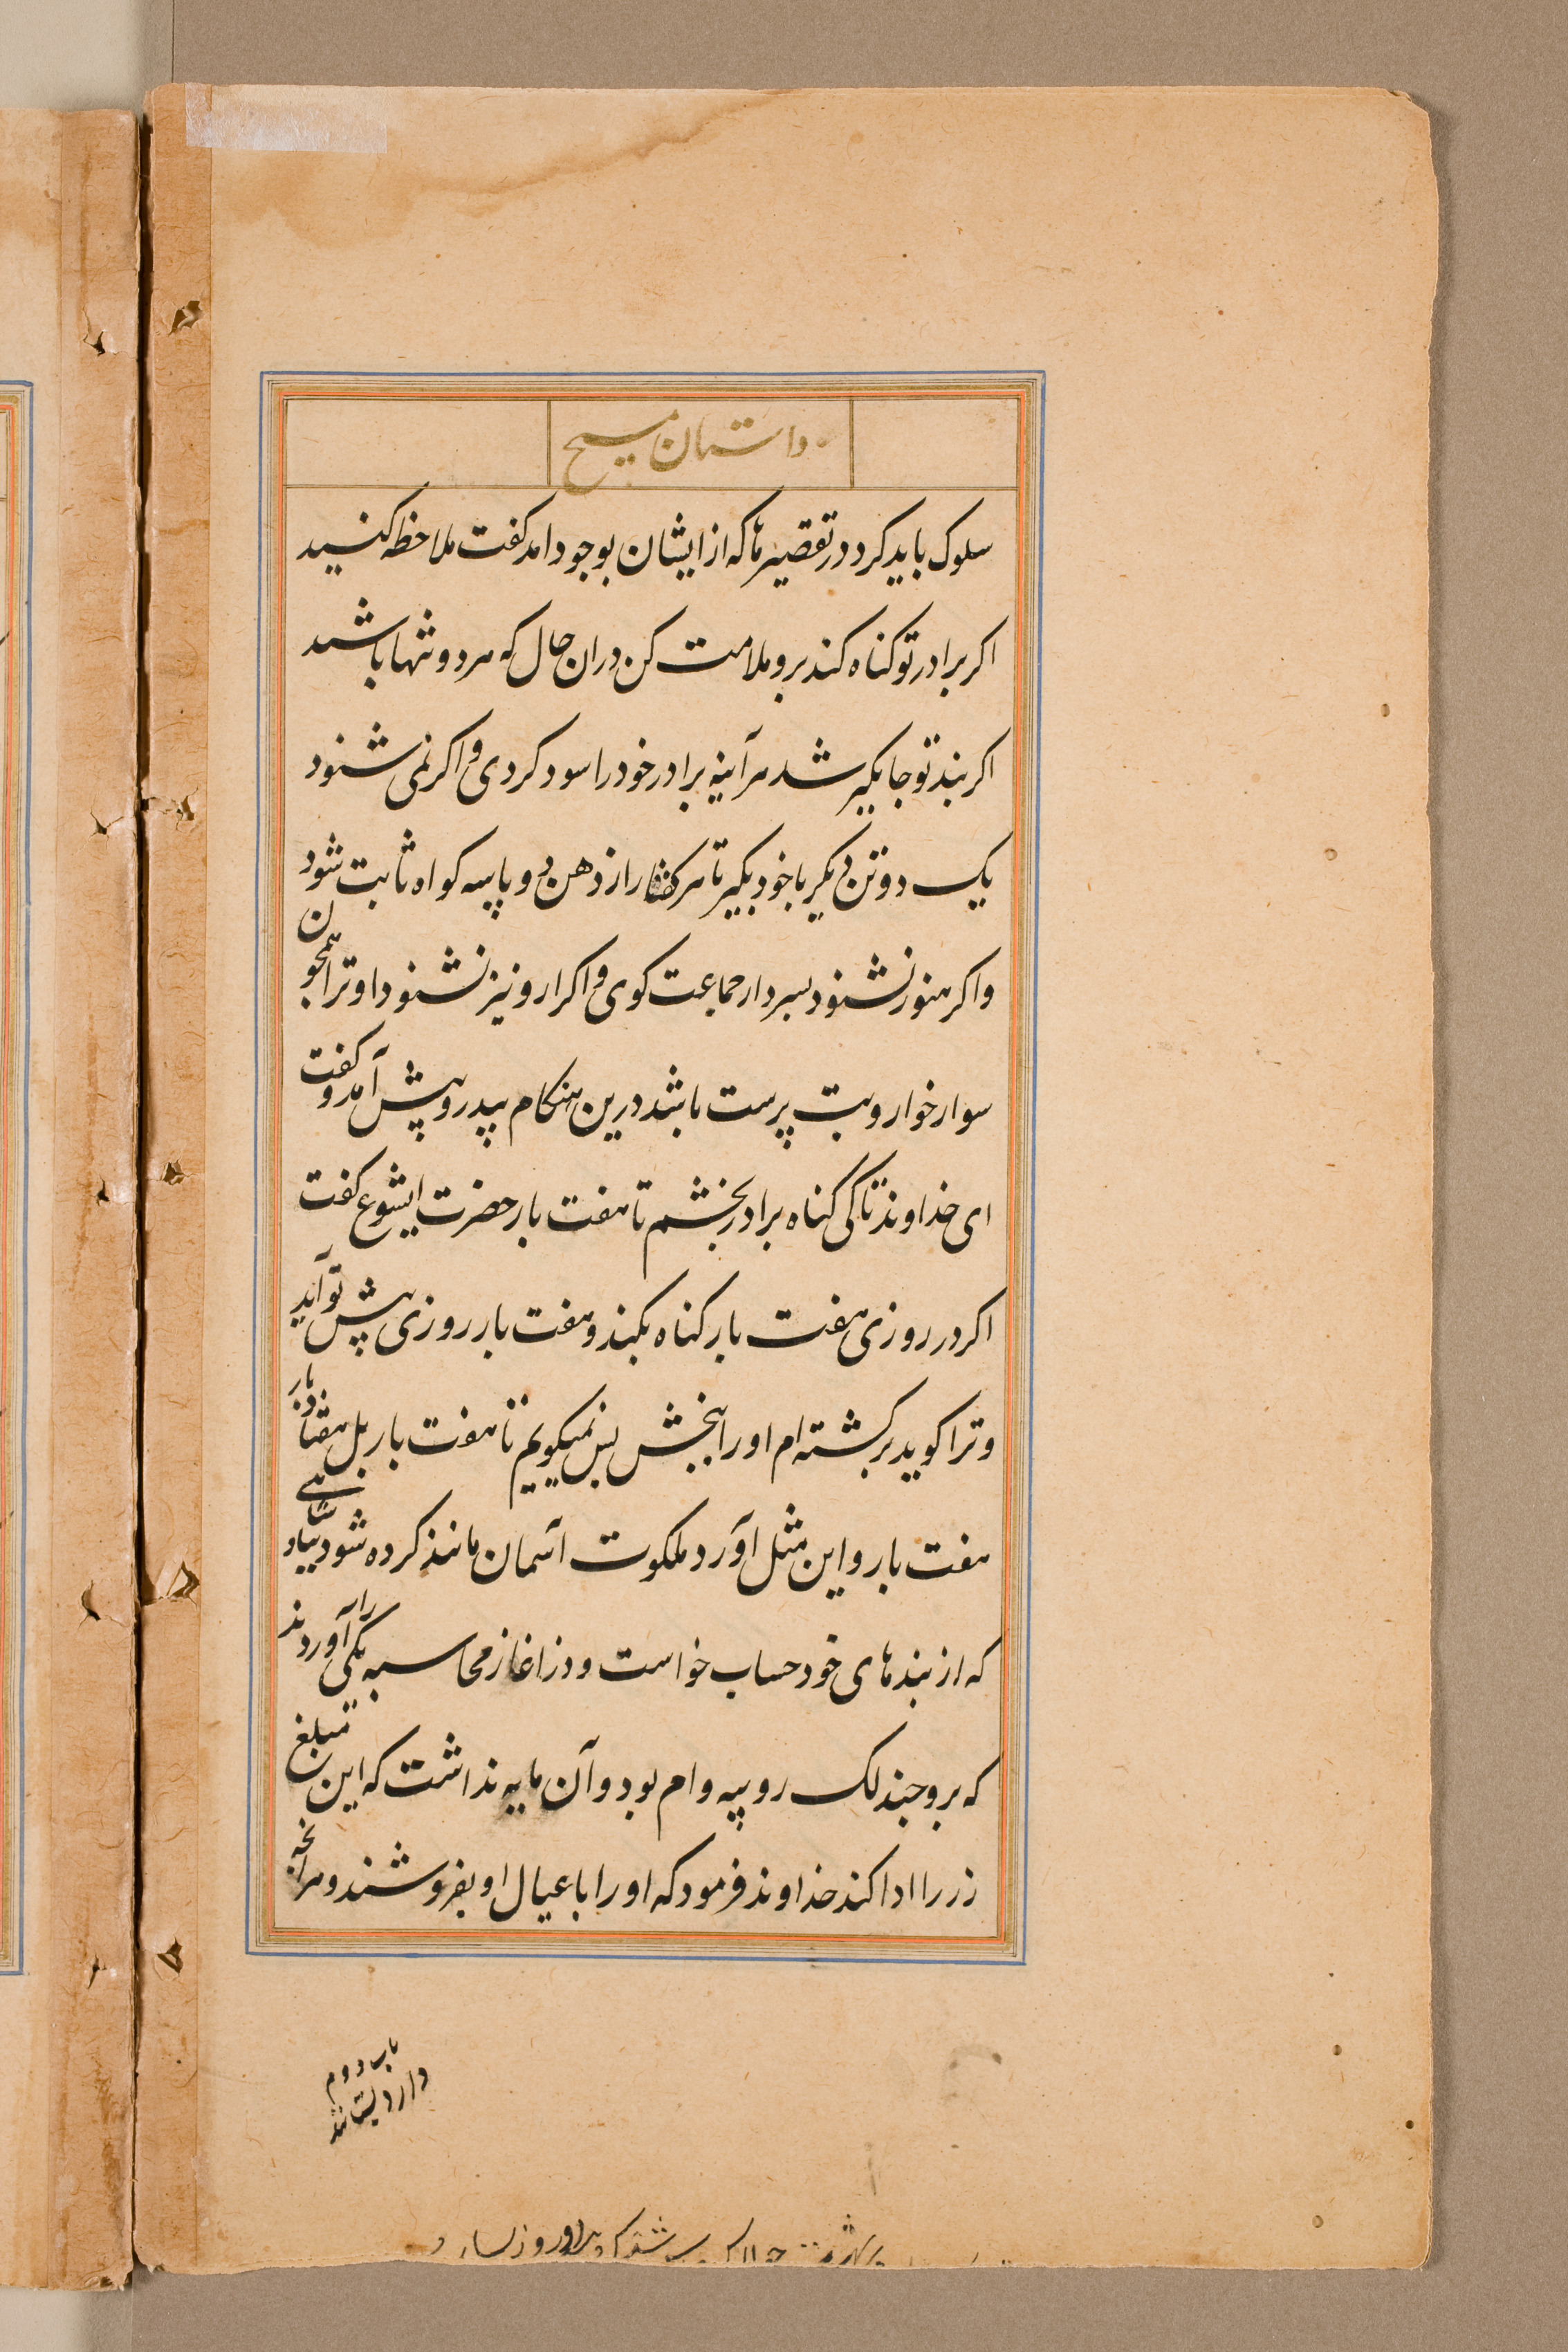 داستان مسیح
سلوک باید کرد در تقصیرها که از ایشان بوجود امد کفت ملاحظه کنید
اکر برادر تو کناه کند برو ملامت کن دران حال که هر دو تنها باشید
اکر پند تو جایکیر شد هرآینه برادر خود را سود کردی و اکر نمی شنود
یک دو تن دیکر با خود بکیر تا هر کفتار از ذهن دو یا سه کواه ثابت شود
و اکر هنوز نشنود بسردار جماعت کوی و اکر ازو نیز نشنود او ترا همچون
سوار خوار و بت پرست باشد درین هنکام پیدرو پیش آمد و کفت
ای خداوند تا کی کناه برادر بخشم تا هفت بار حضرت ایشوع کفت
اکر در روزی هفت بار کناه بکند و هفت بار روزی پیش تو آید
و ترا کوید برکشته ام او را ببخش پس نمیکویم تا هفت بار بل هفتاد بار
هفت بار و این مثل آورد ملکوت آسمان مانند کرده شود بپادشاهی
که از بندهای خود حساب خواست و در اغاز محاسبه یکی را آوردند
که برو چند لک روپیه وام بود و آن مایه نداشت که این مبلغ
زر را ادا کند خداوند فرمود که او را با عیال او بفروشند و هرانچه
باب دوم
دارد بستانند